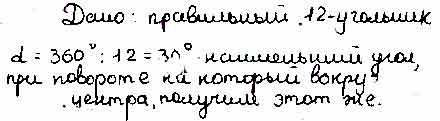 Дано: правильный 12-угольник
α = 360° : 12 = 30° наименьший угол,
при повороте на который вокруг
центра, получим этот же.